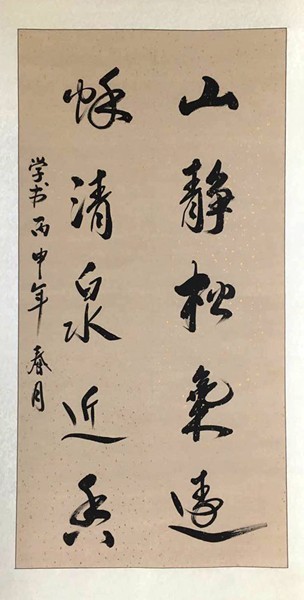 山静松氣遠
秋清泉近香
学书丙申年春月